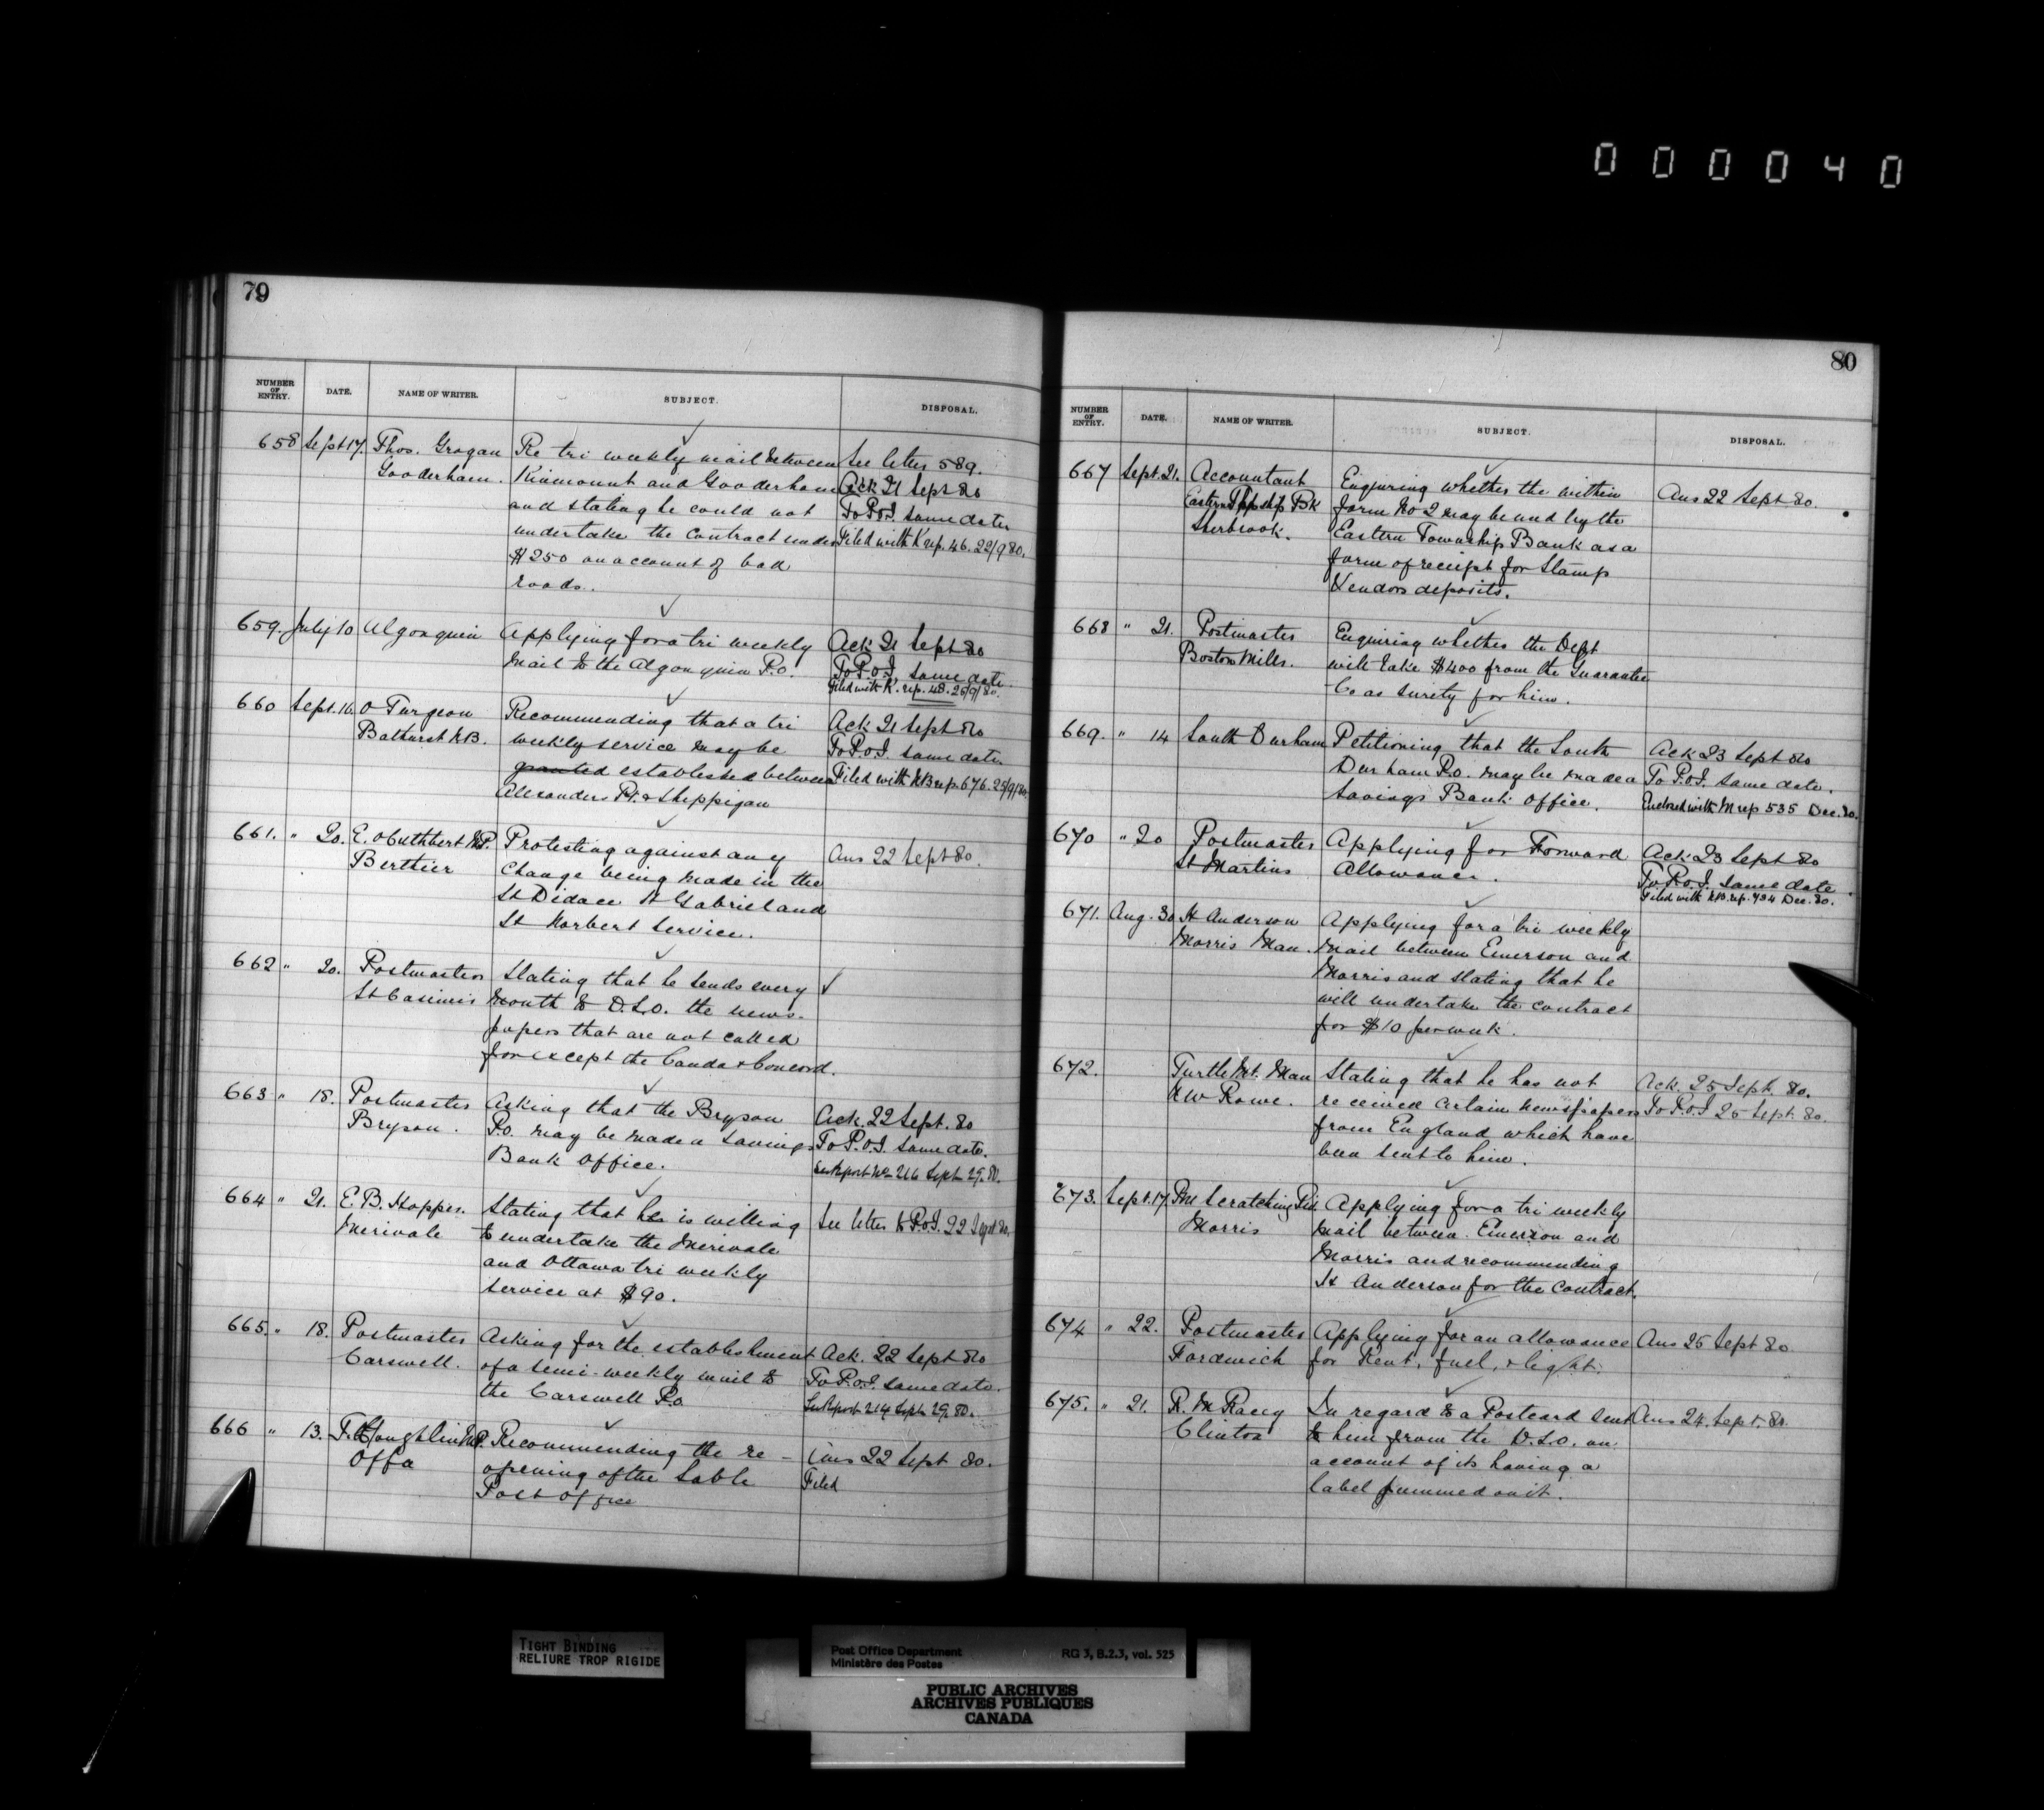 000040
79
NUMBER OF ENTRY. DATE. NAME OF WRITER. SUBJECT. DISPOSAL.
658 Sept 17. Thos. Grogan Re tri weekly mail between See letter 589.
Gooderham. Kinmount and Gooderham Ack 21 Sept 80
and stating he could not To P.O.I. same date
undertake the contract under Filed with K rep. 46. 22/9 80.
$250 on account of bad
roads.
659. July 10 Algonquin Applying for a tri weekly Ack 21 Sept 80
mail to the Algonquin P.O. To P.O.I. same date.
Filed with K. rep. 48. 25/9/80.
660 Sept. 16. O Turgeon Recommending that a tri Ack 21 Sept 80
Bathurst N.B. weekly service may be To P.O.I. same date.
granted established between Filed with NB rep. 676. 25/9/80.
Alexanders Pt. & Shippigan
661. " 20. E. O Cuthbert M.P. Protesting against any Ans 22 Sept 80.
Berthier change being made in the
St Didace St Gabriel and
St Norbert Service.
662 " 20. Postmaster Stating that he sends every
St Casimir month to D.L.O. the news-
papers that are not called
for except the Canda & Concord.
663 " 18. Postmaster Asking that the Bryson Ack. 22 Sept. 80
Bryson. P.O. may be made a Savings To P.O.I. same date.
Bank Office. See Report No 216 Sept 29. 80.
664 " 21. E. B. Hopper. Stating that he is willing See letter to P.O.I. 22 Sept 80.
Merivale to undertake the Merivale
and Ottawa tri weekly
service at $90.
665. " 18. Postmaster Asking for the establishment Ack. 22 Sept 80
Carswell. of a semi-weekly mail to To P.O.I. same date.
the Carswell P.O. See Report 214 Sept 29. 80.
666 " 13. T. Coughlin M.P. Recommending the re- Ans 22 Sept 80.
Offa opening of the Sable Filed
Post Office
80
NUMBER OF ENTRY. DATE. NAME OF WRITER. SUBJECT. DISPOSAL.
667 Sept. 21. Accountant Enquiring whether the within Ans 22 Sept 80.
Eastern Tpship Bk form No 2 may be used by the
Sherbrook. Eastern Township Bank as a
form of receipt for Stamp
Vendors deposits.
668 " 21. Postmaster Enquiring whether the Dept
Boston Mills. will take $400 from the Guarantee
Co as surety for him.
669. " 14 South Durham Petitioning that the South Ack 23 Sept 80
Durham P.O. may be made a To P.O.I. same date.
Savings Bank office. Enclosed with M rep 535 Dec. 80.
670 " 20 Postmaster Applying for Forward Ack 23 Sept 80
St Martins Allowance. To P.O.I. same date.
Filed with NB. rep. 794 Dec. 80.
671. Aug. 30 H Anderson Applying for a tri weekly
Morris Man. mail between Emerson and
Morris and stating that he
will undertake the contract
for $10 per week.
672. Turtle Mt. Man Stating that he has not Ack. 25 Sept. 80.
N W Rowe. received certain newspapers To P.O.I 25 Sept. 80.
from England which have
been sent to him.
673. Sept. 17 PM Scratching Riv Applying for a tri weekly
Morris mail between Emerson and
Morris and recommending
H Anderson for the contract.
674 " 22. Postmaster Applying for an allowance Ans 25 Sept 80.
Fordwich for Rent, fuel, & light.
675. " 21. R. M Racey In regard to a Postcard sent Ans 24. Sept. 80.
Clinton to him from the D.L.O. on
account of its having a
label gummed on it.
TIGHT BINDING
RELIURE TROP RIGIDE
Post Office Department RG 3, B.2.3, vol. 525
Ministère des Postes
PUBLIC ARCHIVES
ARCHIVES PUBLIQUES
CANADA